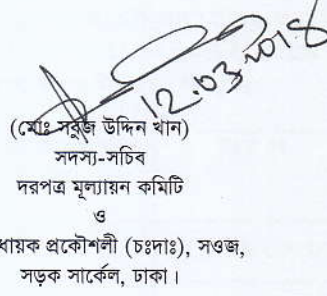 12.03.2018
(মোঃ সবুজ উদ্দিন খান)
সদস্য-সচিব
দরপত্র মূল্যায়ন কমিটি
ও
ধায়ক প্রকৌশলী (চঃদাঃ), সওজ,
সড়ক সার্কেল, ঢাকা।